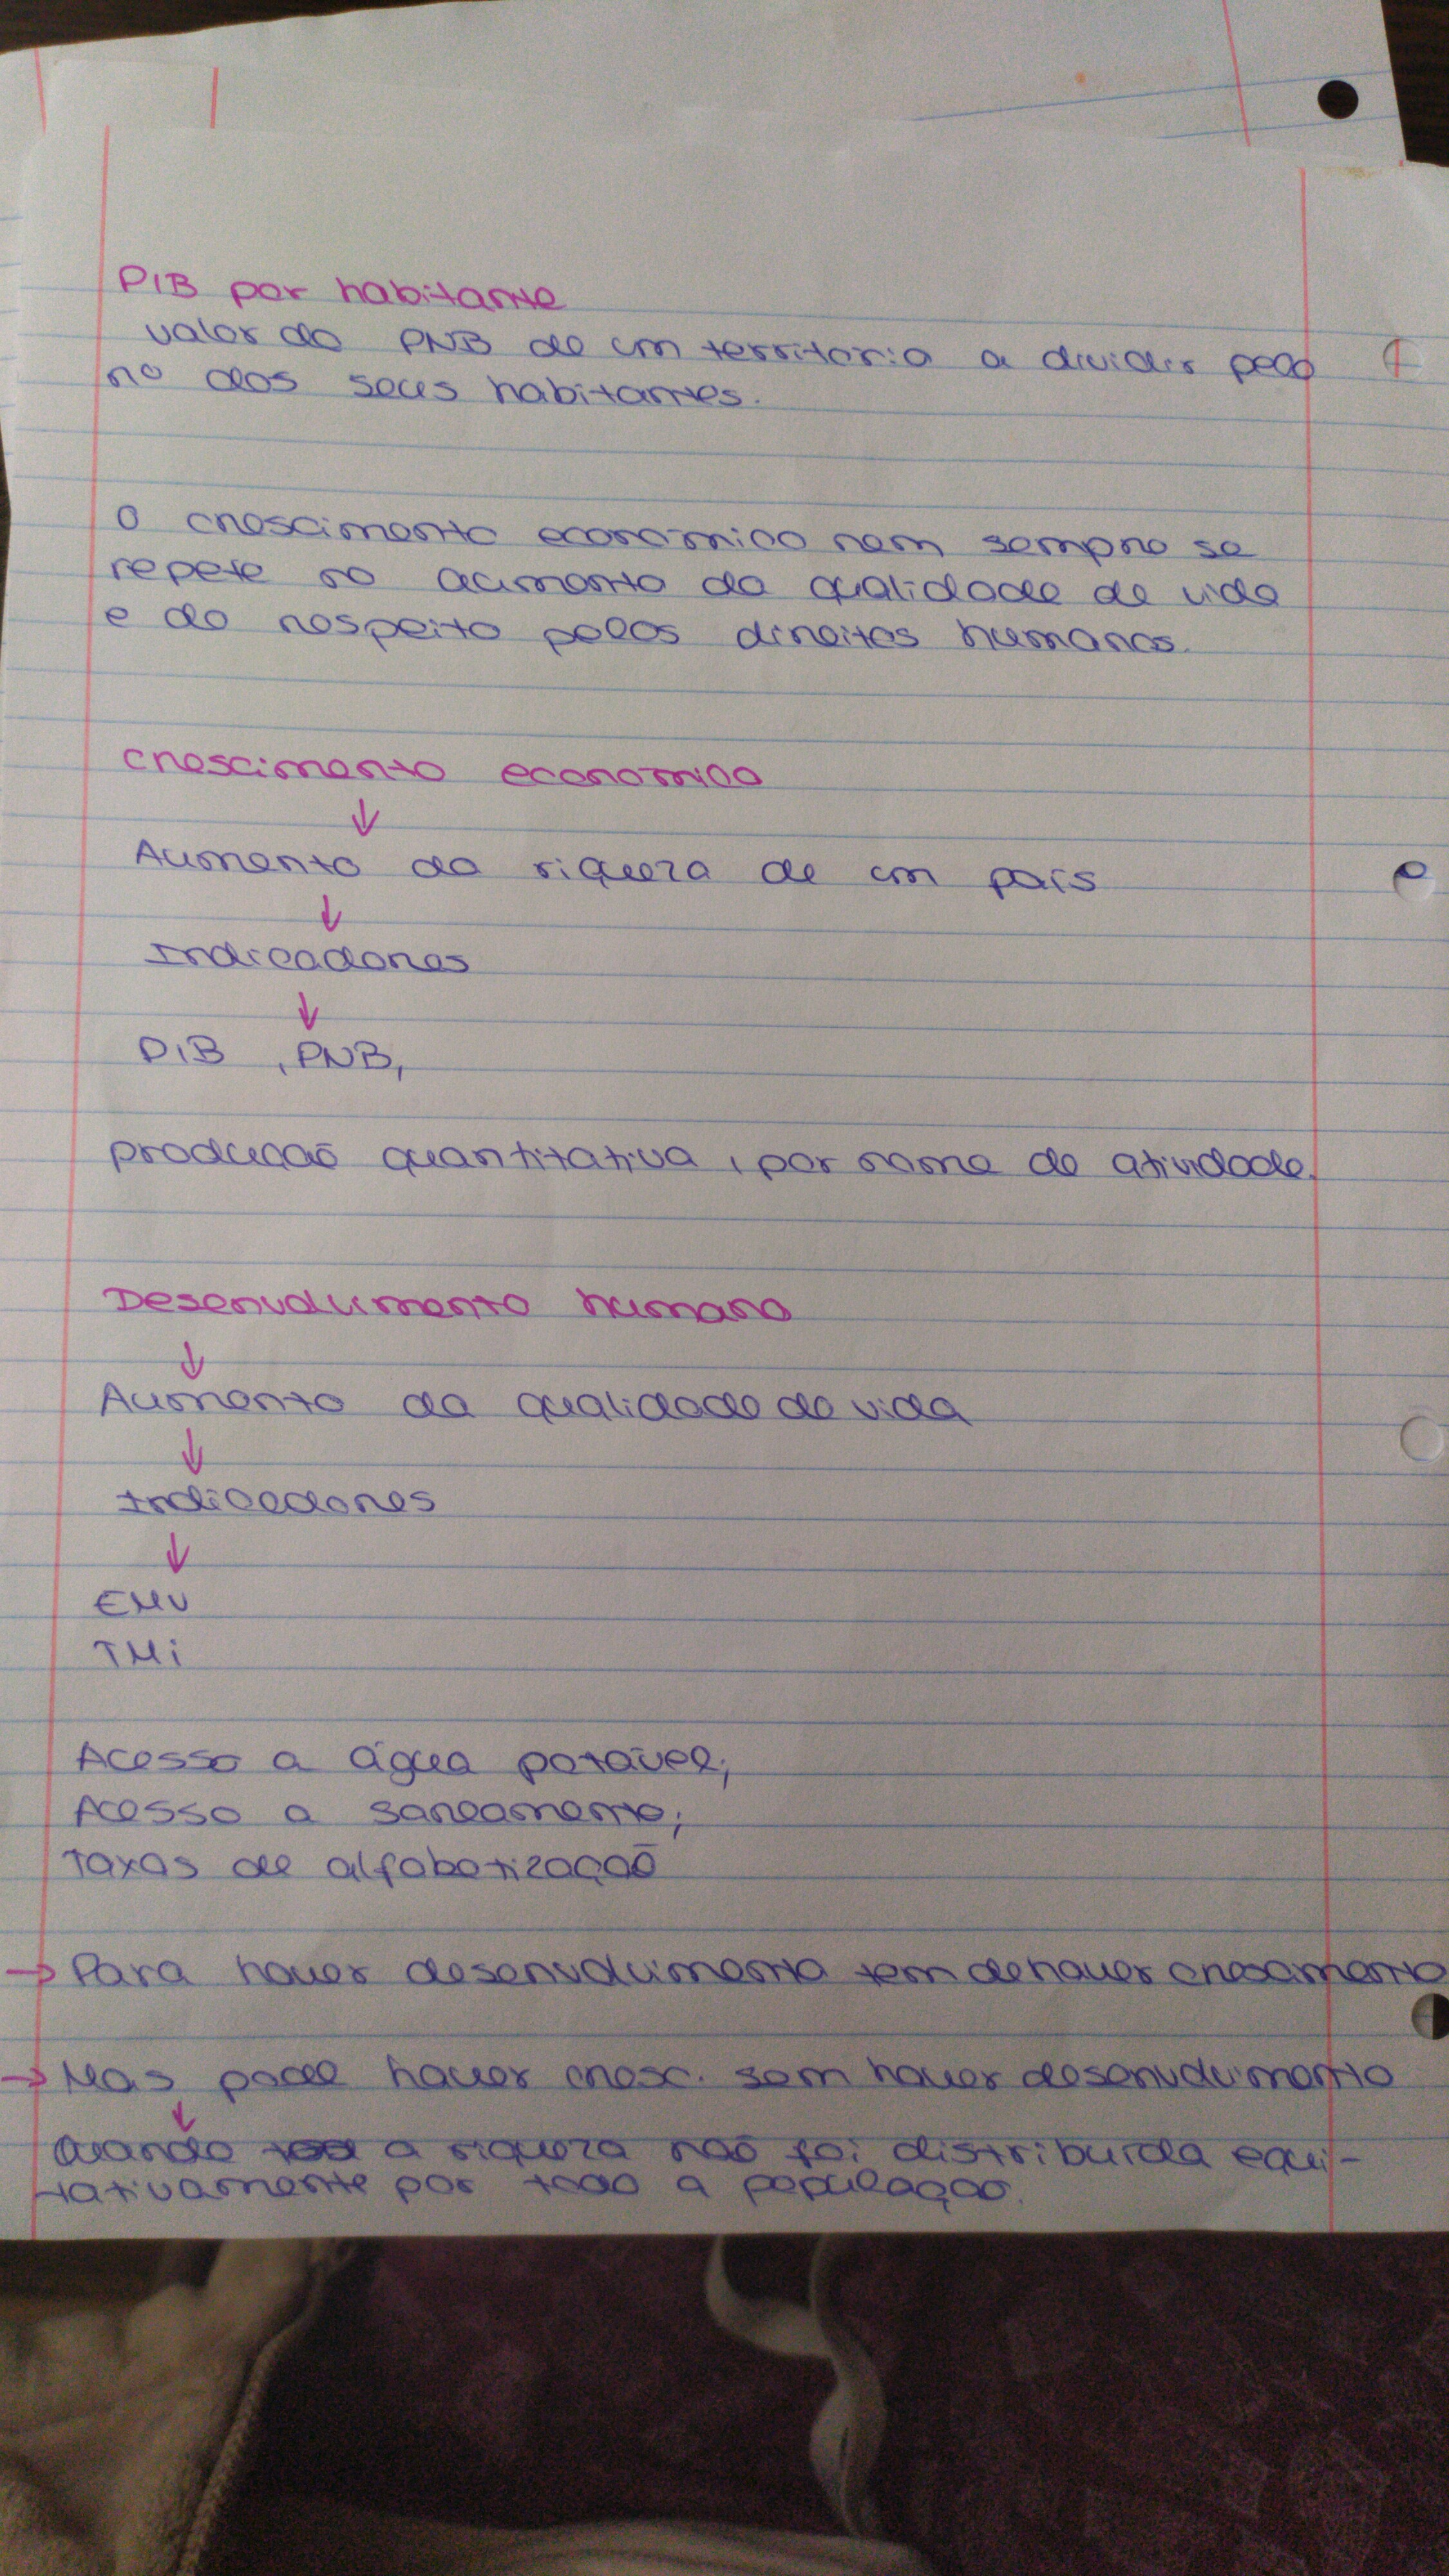 PIB por habitante
valor do PNB de um territorio a dividir pelo
no dos seus habitantes.
O crescimento económico nem sempre se
repete no aumento da qualidade de vida
e do respeito pelos direitos humanos.
Crescimento económico
↓
Aumento da riqueza de um país
↓
Indicadores
↓
PIB , PNB,
produção quantitativa, por ramo de atividade.
Desenvolvimento humano
↓
Aumento da qualidade de vida
↓
Indicadores
↓
EMV
TMi
Acesso a água potável;
Acesso a saneamento;
Taxas de alfabetização
→ Para haver desenvolvimento tem de haver crescimento
→ Mas pode haver cresc. sem haver desenvolvimento
↓
Quando a riqueza não foi distribuída equi-
tativamente por toda a população.